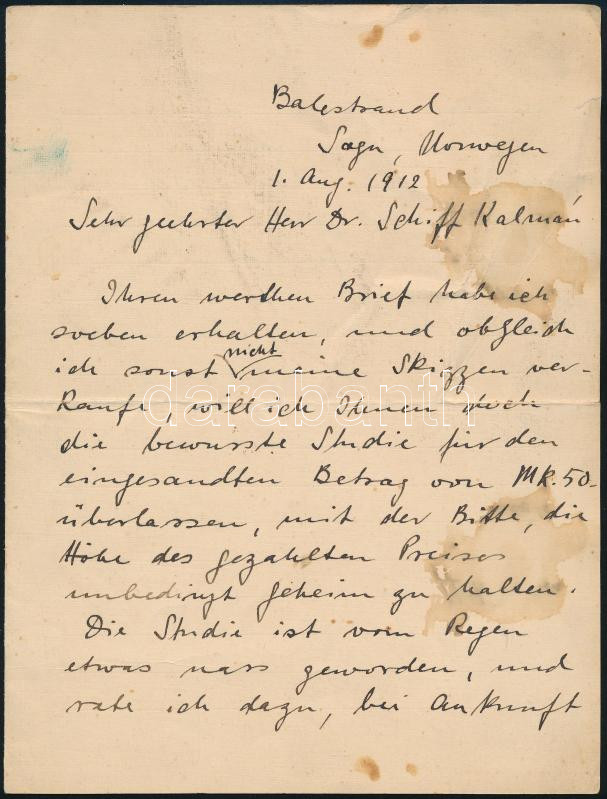 Balestrand
Sogn, Norwegen
1. Aug. 1912
Sehr geehrter Herr Dr. Schiff Kalmán
Ihren werthen Brief habe ich
soeben erhalten, und obgleich
ich sonst nicht meine Skizzen ver-
kaufe, will ich Ihnen doch
die bewusste Studie für den
eingesandten Betrag von MK. 50-
überlassen, mit der Bitte, die
Höhe des gezahlten Preises
unbedingt geheim zu halten.
Die Studie ist vom Regen
etwas nass geworden, und
rate ich dazu, bei Ankunft
darabanth